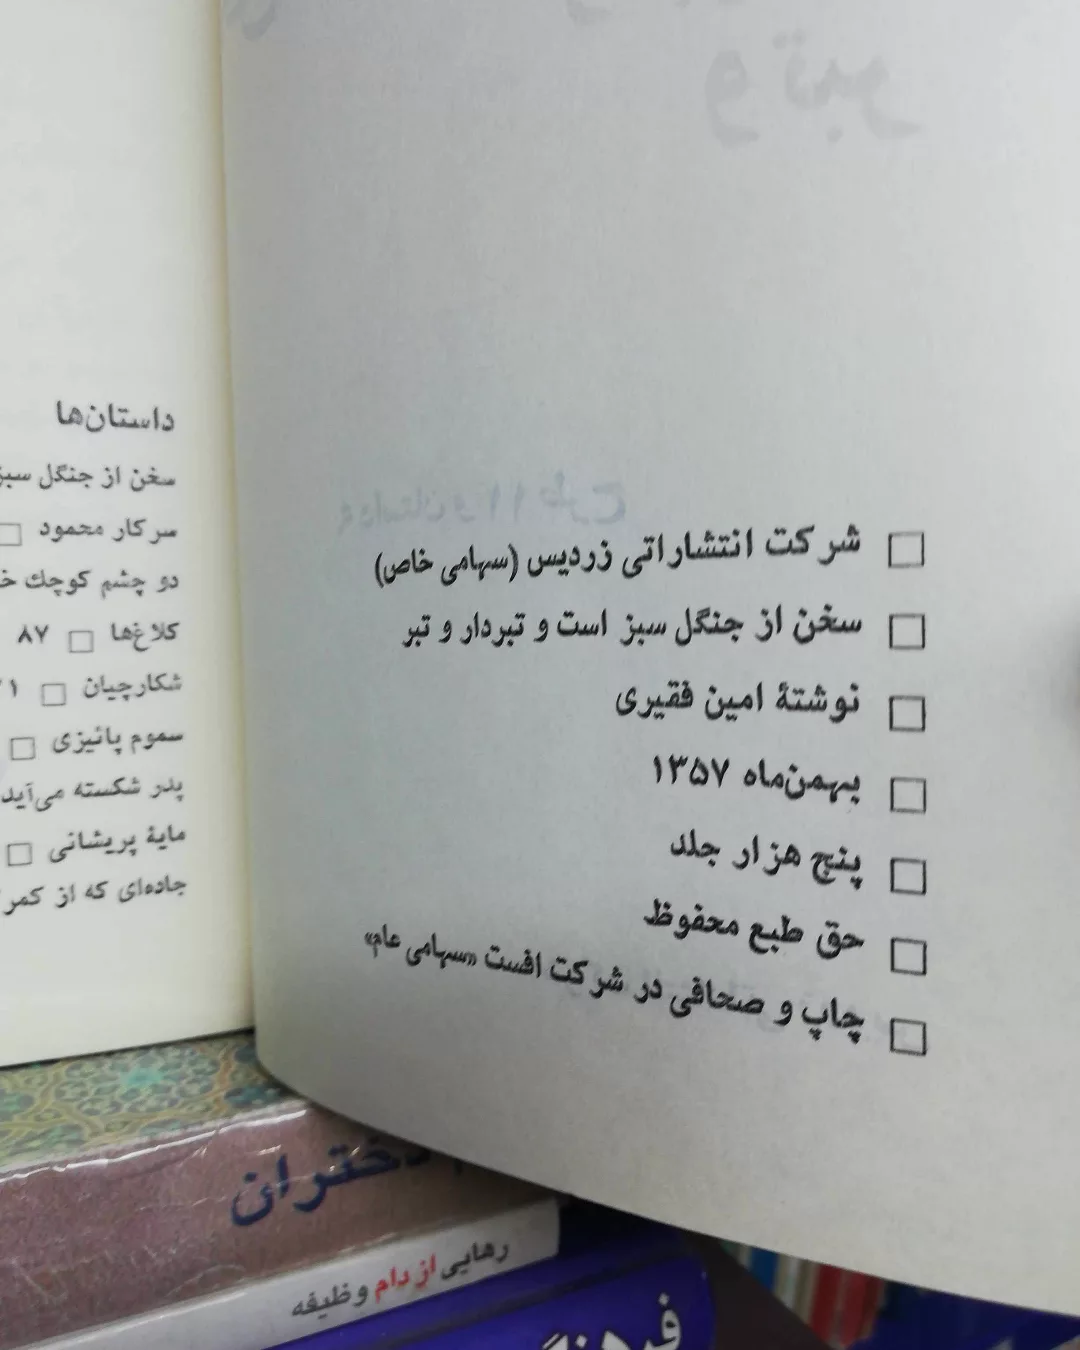 شرکت انتشاراتی زردیس (سهامی خاص)
سخن از جنگل سبز است و تبردار و تبر
نوشتهٔ امین فقیری
بهمن‌ماه ۱۳۵۷
پنج هزار جلد
حق طبع محفوظ
چاپ و صحافی در شرکت افست «سهامی عام»
داستان‌ها
سخن از جنگل سبز
سرکار محمود
دو چشم کوچك
کلاغ‌ها ۸۷
شکارچیان
سموم پائیزی
پدر شکسته می‌آید
مایهٔ پریشانی
جاده‌ای که از کمر
دختران
رهایی از دام وظیفه